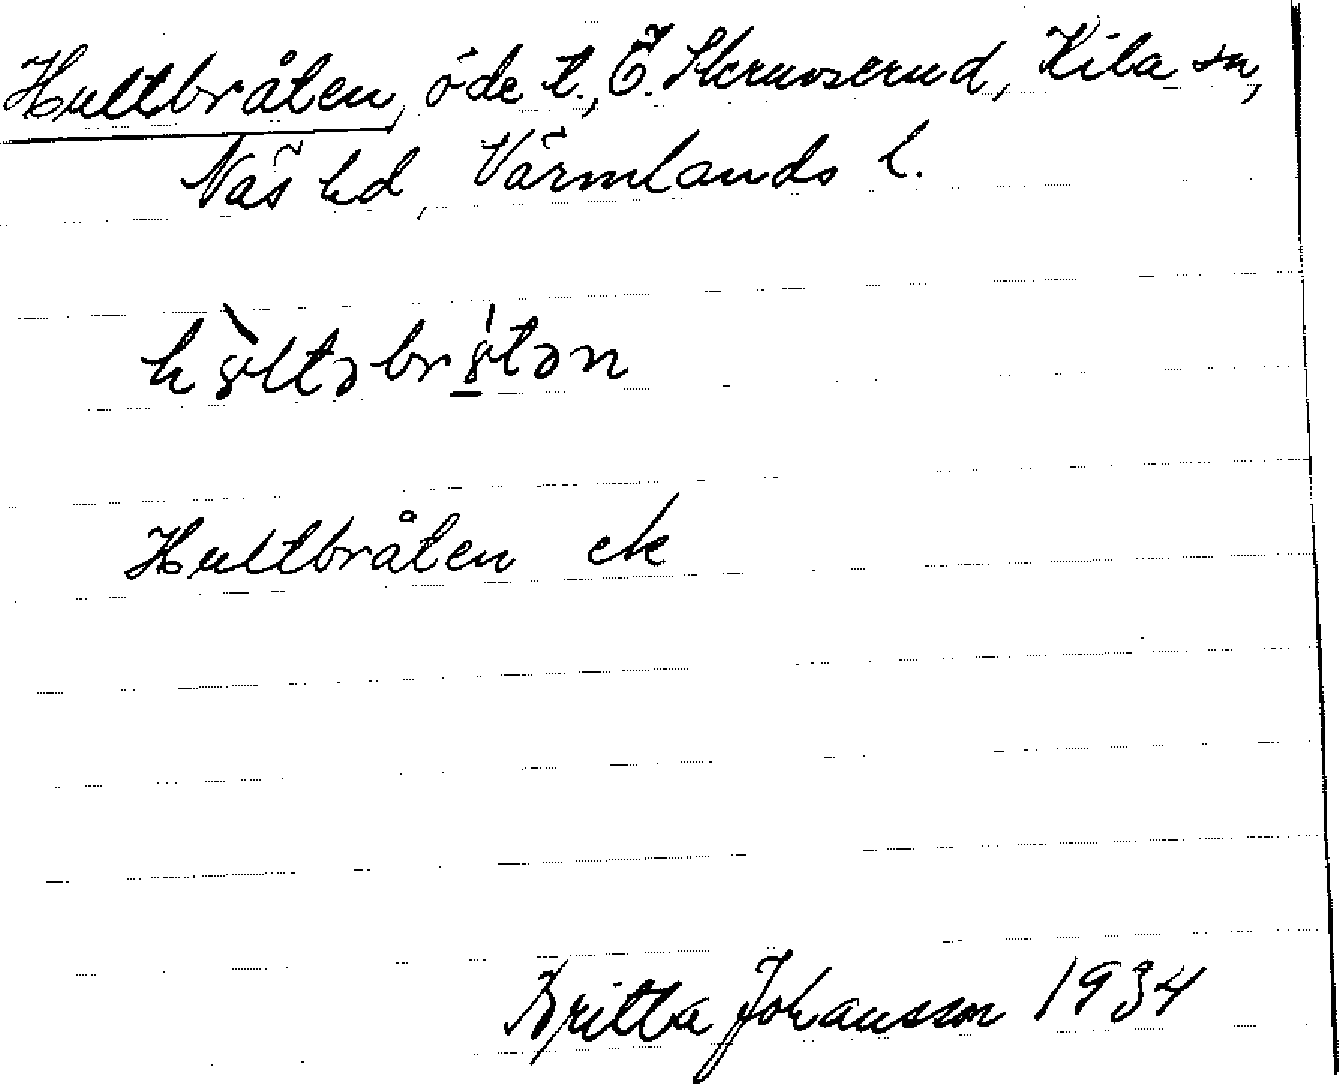 Hultbråten, öde t., Ö. Skruvserud, Kila sn,
Näs hd, Värmlands l.
Hultbråten ek
Britta Johansson 1934